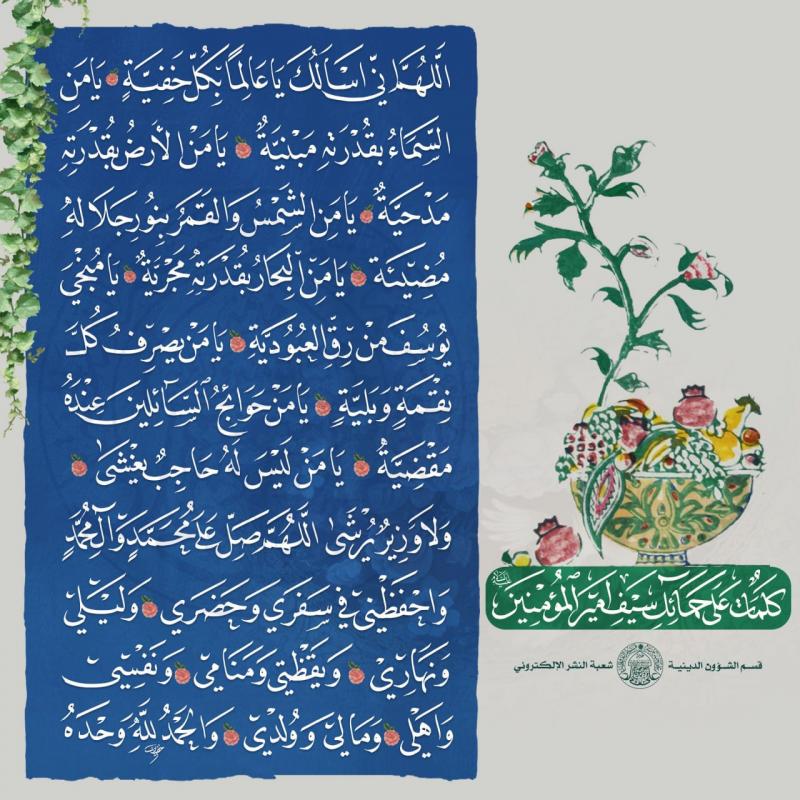 اَللّٰهُمَّ اِنّي اَسْاَلُكَ يَا عَالِماً بِكُلِّ خَفِيَّةٍ يَا مَنِ
السَّمَاءُ بِقُدْرَتِهِ مَبْنِيَّةٌ يَا مَنِ الْاَرْضُ بِقُدْرَتِهِ
مَدْحِيَّةٌ يَا مَنِ الشَّمْسُ وَالْقَمَرُ بِنُورِ جَلَالِهِ
مُضِيْئَة يَا مَنِ الْبِحَارُ بِقُدْرَتِهِ مُجْرِيَةٌ يَا مُنْجِيَ
يُوسُفَ مِنْ رِقِّ الْعُبُودِيَّةِ يَا مَنْ يَصْرِفُ كُلَّ
نِقْمَةٍ وَبَلِيَّةٍ يَا مَنْ حَوَائِجُ السَّآئِلِينَ عِنْدَهُ
مَقْضِيَّةٌ يَا مَنْ لَيْسَ لَهُ حَاجِبٌ يُغْشَىٰ
وَلَا وَزِيرٌ يُرْشَىٰ اَللّٰهُمَّ صَلِّ عَلَى مُحَمَّدٍ وَّآلِ مُحَمَّدٍ
وَاحْفَظْنِيْ فِي سَفَرِي وَحَضَرِي وَلَيْلِيْ
وَنَهَارِيْ وَيَقْظَتِيْ وَمَنَامِيْ وَنَفْسِيْ
وَاَهْلِيْ وَمَالِيْ وَوُلْدِيْ وَالْحَمْدُ لِلّٰهِ وَحْدَهُ
كلمات على حمائل سيف أمير المؤمنين
قسم الشؤون الدينية شعبة النشر الإلكتروني